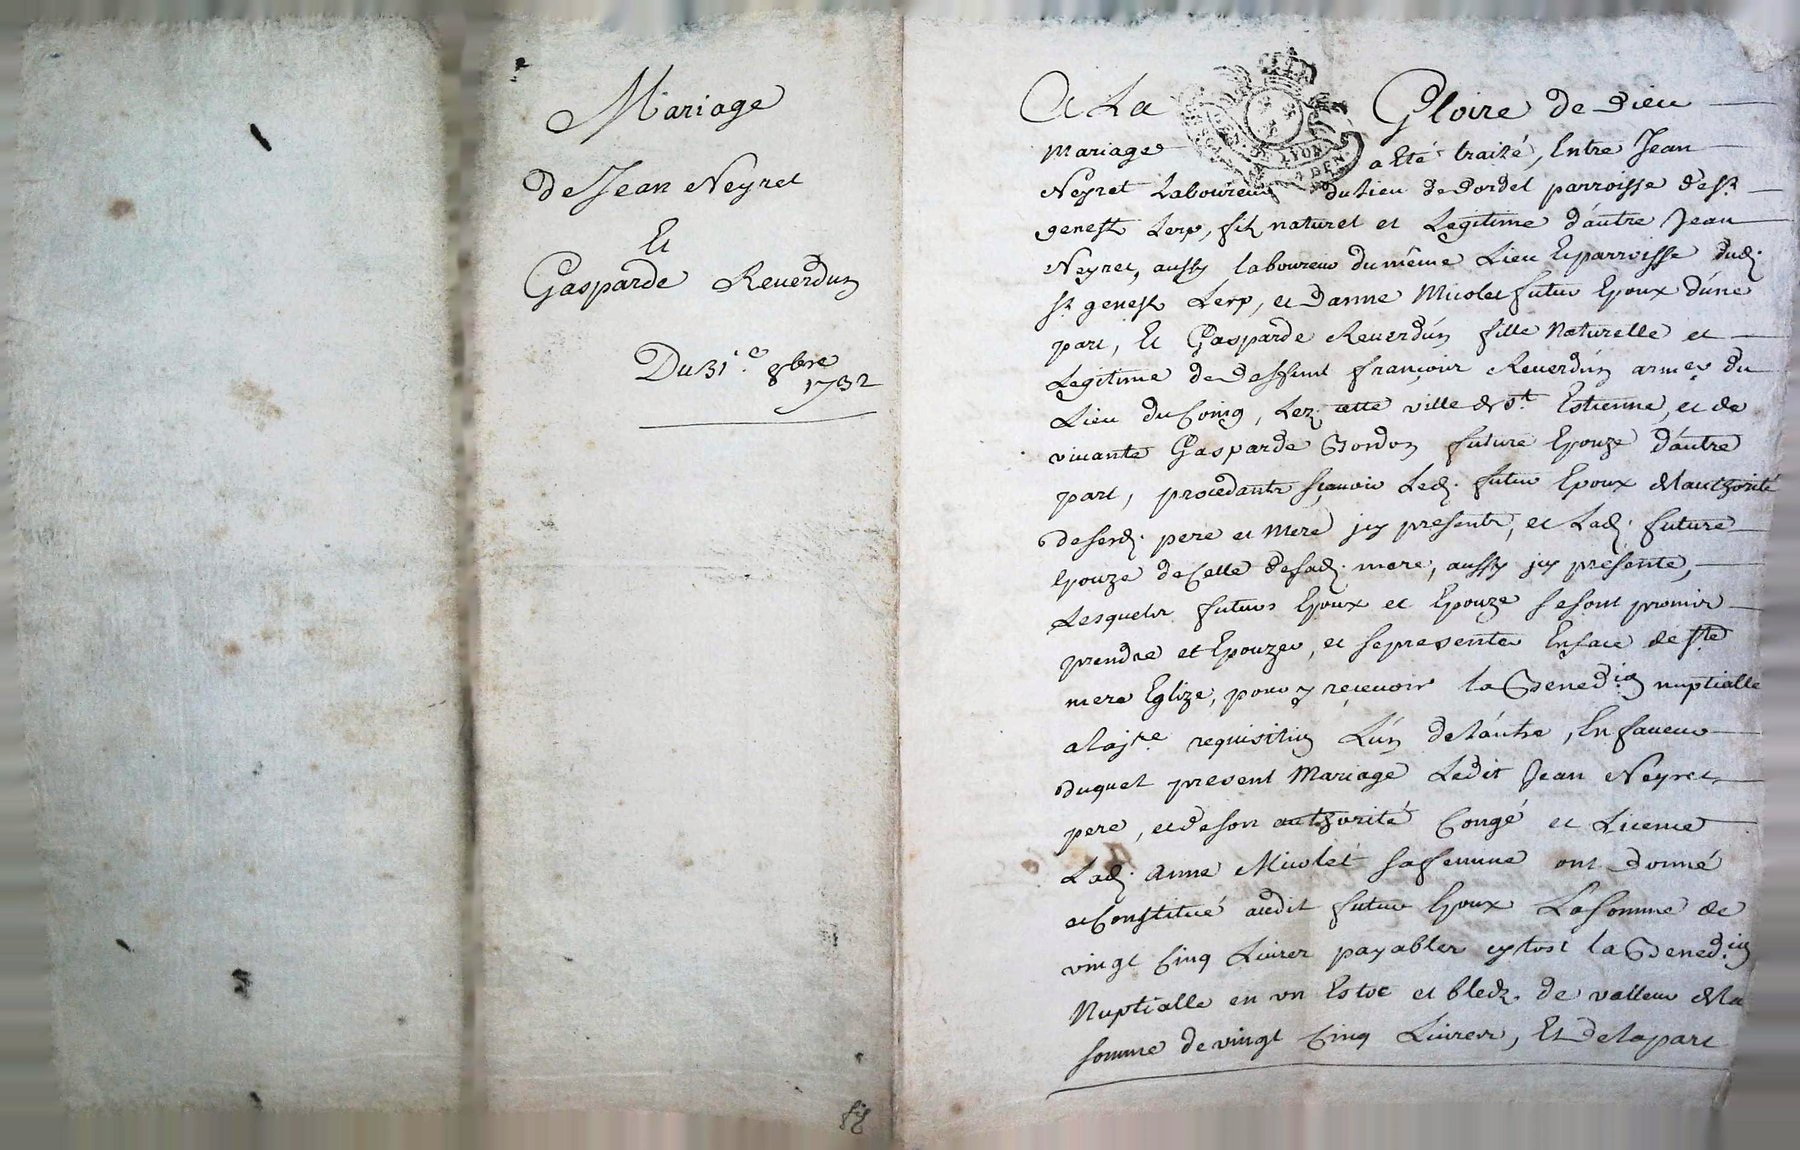 Mariage
de Jean Neyret
Et
Gasparde Reuerdun
Du 31.e 8bre
1732
A La Gloire de Dieu
DE LYON
GEN.
mariage a Eté traité, Entre Jean
Neyret Laboureur du Lieu de Dordel parroisse de st
genest Lerp, fils naturel et Legitime d'autre Jean
Neyret, aussy laboureur du même Lieu Et parroisse dud.
st genest Lerp, et d'anne Micolet futur Epoux d'úne
part, Et Gasparde Reuerdún fille Naturelle et
Legitime de deffunt françois Reuerdún armeur du
Lieu du Coing, Lez cette ville de st Estienne, et de
viuante Gasparde Bordon future Epouze d'autre
part, procedants sçauoir Led. futur Epoux de l'authorité
de sesd. pere et mere jcy presents, et Lad. future
Epouze de Celle de sad. mere, aussy jcy presente,
Lesquels futurs Epoux et Epouze se sont promis
prendre et Epouzer, et se presenter En face de ste
mere Eglize, pour y reçeuoir la Bened.ion nuptialle
a la jre requisition L'ún de l'aútre, En faueur
duquel present Mariage Ledit Jean Neyret
pere, et de son authorité Congé et Licence
Lad. Anne Micolet sa femme ont donné
et Constitué audit futur Epoux La somme de
vingt Cinq Liures payables sytost la Bened.ion
Nuptialle en un Estoc et bleds de valleur de la
somme de vingt Cinq Liures, Et de la part